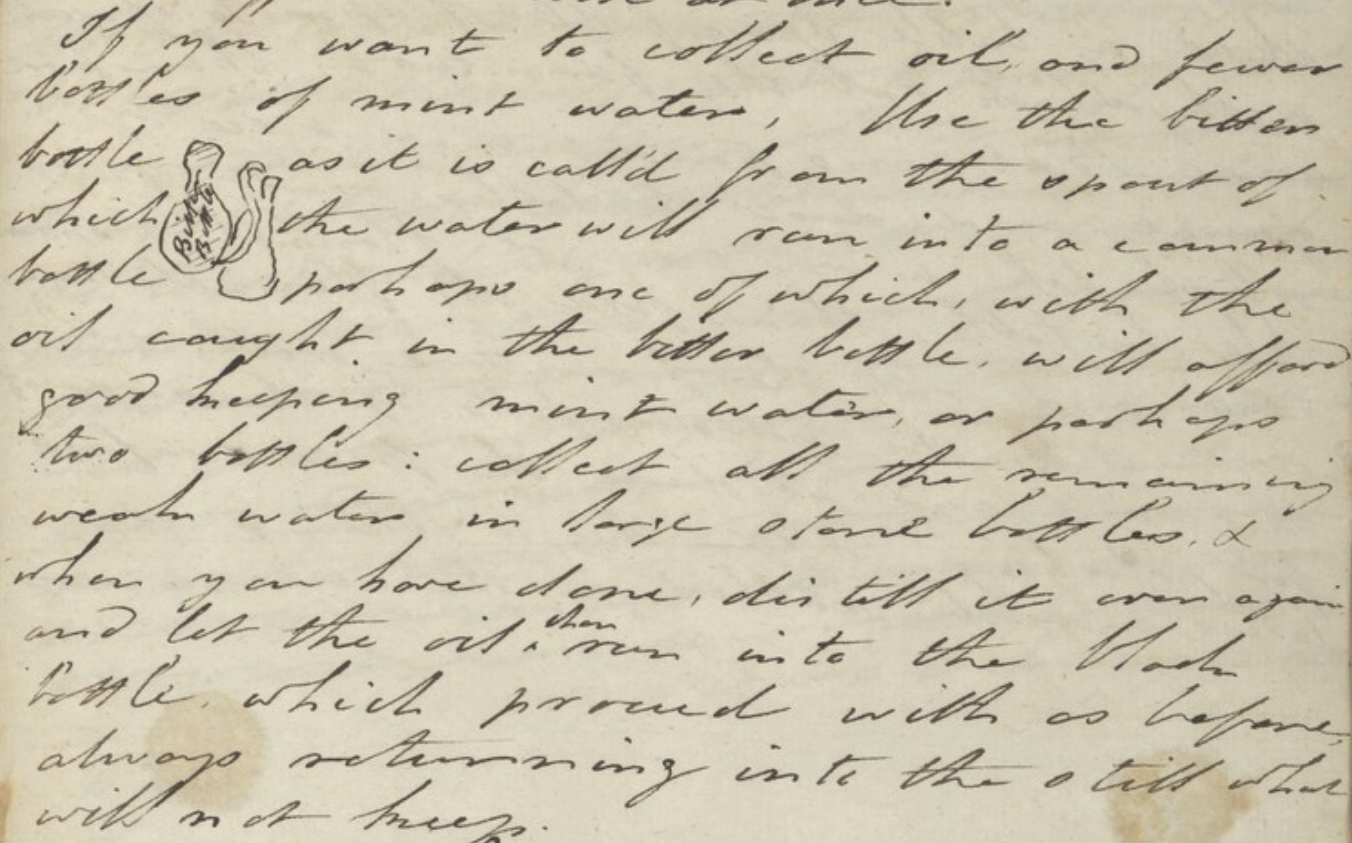 If you want to collect oil, and fewer
bottles of mint water, Use the bitter
bottle as it is call'd from the spout of
which the water will run into a common
Bitter
Bottle
bottle perhaps one of which, with the
oil caught in the bitter bottle, will afford
good keeping mint water, or perhaps
two bottles: collect all the remaining
weak water in large stone bottles, &
when you have done, distill it over again
and let the oil ^then run into the black
bottle, which proceed with as before,
always returning into the still what
will not keep.